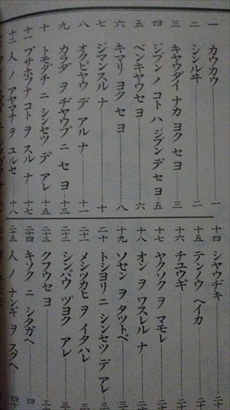 一 カウカウ 一
二 シンルヰ
三 キヤウダイ ナカ ヨク セヨ 三
四 ジブン ノ コト ハ ジブン デ セヨ 五
五 ベンキヤウ セヨ 六
六 キマリ ヨク セヨ 八
七 ジマン スルナ 十
八 オクビヤウ デ アルナ 十一
九 カラダ ヲ ヂヤウブ ニ セヨ 十三
十 トモダチ ニ シンセツ デ アレ 十五
十一 ブサホフナ コト ヲ スルナ 十七
十二 人 ノ アヤマチ ヲ ユルセ 十八
十四 シヤウヂキ
十五 テンノウ ヘイカ
十六 チユウギ
十七 ヤクソク ヲ マモレ
十八 オン ヲ ワスレルナ
十九 ソセン ヲ タツトベ
二十 トシヨリ ニ シンセツ デ アレ
二十一 メシツカヒ ヲ イタハレ
二十二 シンバウ ヅヨク アレ
二十三 クフウセヨ
二十四 キソク ニ シタガヘ
二十五 人 ノ ナンギ ヲ スクヘ